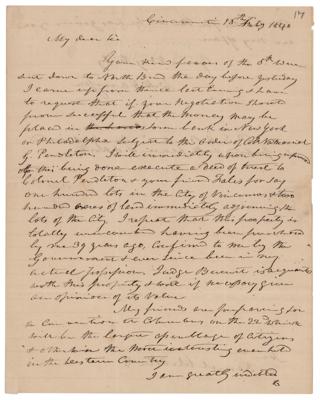 Cincinnati 15th Feby 1840
My dear Sir
Your kind favour of the 8th were
sent down to North Bend the day before yesterday
I came up from thence last evening & have
to request that if your Negotiation should
prove successful that the money may be
placed in some bank in New York
or Philadelphia subject to the Order of Col Nathaniel
G. Pendleton. I will immediately upon being
this being done execute a Deed of trust to
Colonel Pendleton & your friend Fales for say
one hundred lots in the City of Vincennes & two
hundred acres of land immediately adjoining the
lots of the City I repeat that this property is
totally unencumbered having been purchased
by me 39 years ago, confirmed to me by the
Government & ever since been in my
actual possession. Judge Burnet is acquainted
with this property & will if necessary give
an opinion of its value
My friends are preparing for
a Convention at Columbus on the 22d which
will be the largest assemblage of Citizens
& otherwise the most interesting ever held
in the Western Country
I am greatly indebted